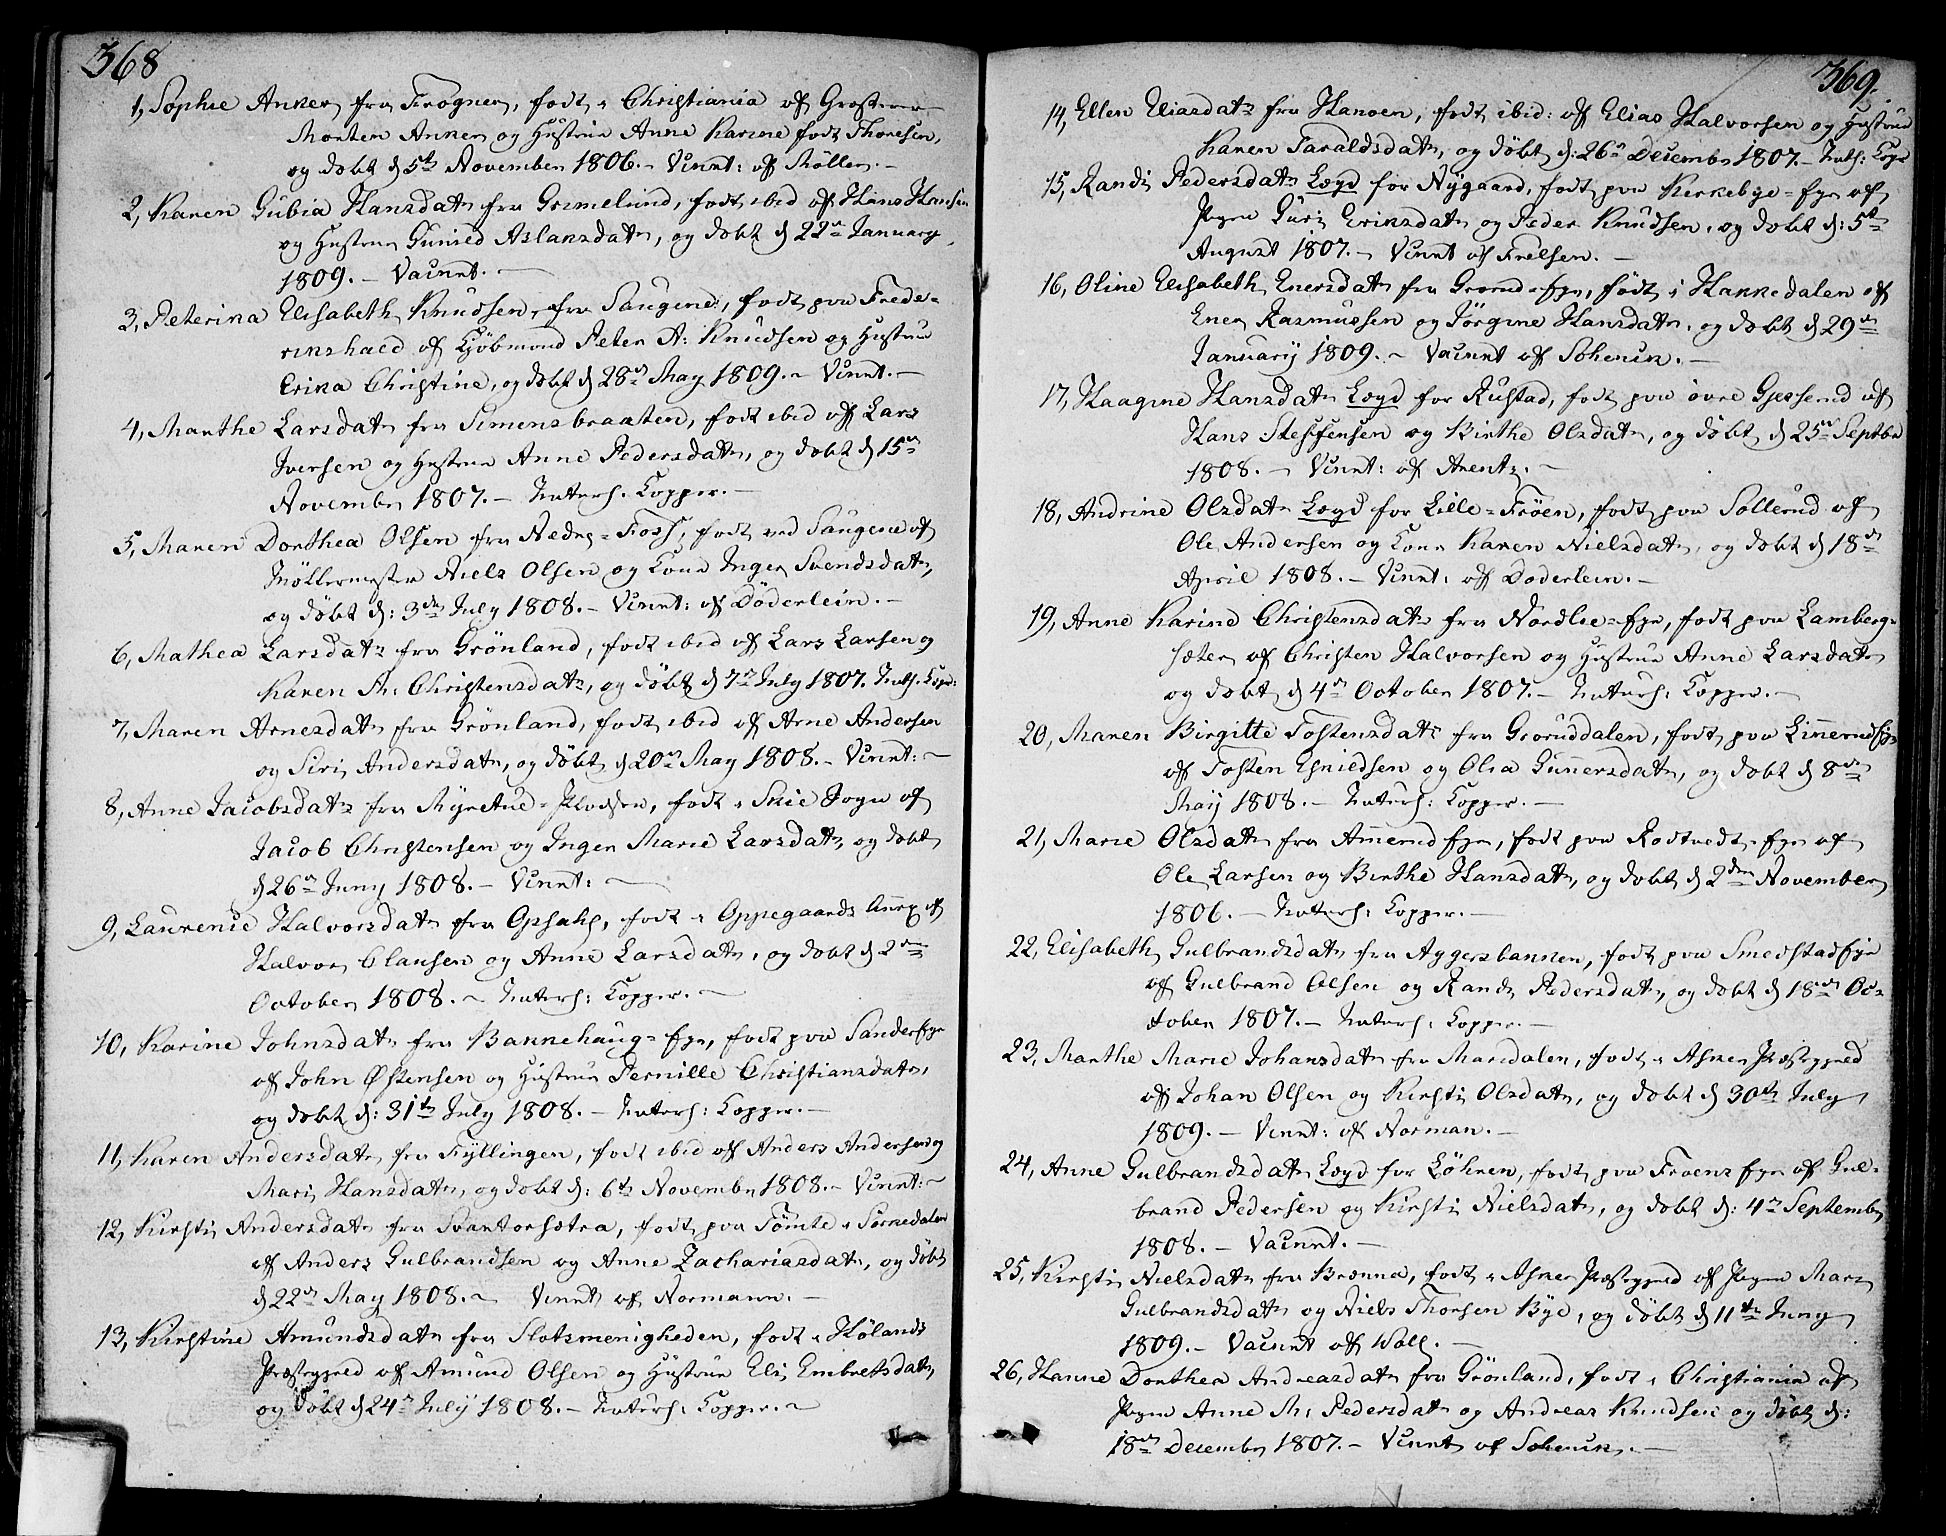 368
1, Sophie Anker fra Frogner, født i Christiania af Grosserer
Morten Anker og Hustrue Anne Karine født Thoresen,
og døbt d 5te November 1806. - Vaccnt: af Møller. -
2, Karen Gubia Hansdatr fra Grimelund, født ibid af Hans Hansen
og Hustrue Gunild Aslaksdatr, og døbt d 22de January
1809. - Vaccnt. -
3, Peterika Elisabeth Knudsen, fra Saugene, født paa Frede-
rikshald af Kjøbmand Peter A: Knudsen og Hustrue
Erika Christine, og døbt d 28de May 1809. - Vaccnt. -
4, Marthe Larsdatr fra Simensbraaten, født ibid af Lars
Iversen og Hustrue Anne Pedersdatr, og døbt d 15de
Novembr 1807. - Naturl. Kopper. -
5, Maren Dorthea Olsen fra Nedre-Foss, født ved Saugene af
Møllermester Niels Olsen og Kone Inger Svendsdatr,
og døbt d: 3die July 1808. - Vaccnt: af Døderlein. -
6, Mathea Larsdatr fra Grönland, født ibid af Lars Larsen og
Karen M: Christensdatr, og døbt d 7de July 1807. Natl. Kopr:
7, Maren Arnesdatr fra Grönland, født ibid af Arne Andersen
og Siri Andersdatr, og døbt d 20de May 1808. - Vaccnt: -
8, Anne Jacobsdatr fra -Pladsen, født i Skie Sogn af
Jacob Christensen og Inger Marie Larsdatr, og døbt
d 26de Juny 1808. - Vaccnt: -
9, Laurence Halvorsdatr fra Opsahl, født i Oppegaards Annex af
Halvor Clausen og Anne Larsdatr, og døbt d 2den
October 1808. - Naturl: Kopper. -
10, Karine Johnsdatr fra Bakkehaug-Eje, født paa Sander Eje
af John Østensen og Hustrue Pernille Christiansdatr,
og døbt d: 31te July 1808. - Naturl: Kopper. -
11, Karen Andersdatr fra Kyllingen, født ibid af Anders Andersen og
Mari Hansdatr, og døbt d: 6te Novembr 1808. - Vaccnt: -
12, Kirsti Andersdatr fra Svartorsætra, født paa Tömte i Sørkedalen
af Anders Gulbrandsen og Anne Zachariasdatr, og døbt
d 22de May 1808. - Vaccnt af Normann. -
13, Kirstine Amundsdatr fra Slotsmenigheden, født i Hølands
Præstegield af Amund Olsen og Hustrue Eli Embretsdatr,
og døbt d 24de July 1808. - Naturl: Kopper. -
369.
14, Ellen Eliasdatr fra Hanoen, født ibid: af Elias Halvorsen og Hustrue
Karen Taraldsdatr, og døbt d: 26de Decembr 1807. - Natl: Kopr
15, Randi Pedersdatr Lægd for Nygaard, født paa Kirkebye-Eje af
Pigen Guri Eriksdatr og Peder Knudsen, og døbt d: 5te
August 1807. - Vaccnt af Frelsen. -
16, Oline Elisabeth Enersdatr fra Grorud-Eje, født i Hakkedalen af
Ener Rasmussen og Jörgine Hansdatr, og døbt d 29de
January 1809. - Vaccnt af Schenck. -
17, Haagine Hansdatr Lægd for Rustad, født paa övre Gjesserud af
Hans Steffensen og Birthe Olsdatr, og døbt d 25de Septbr
1808. - Vaccnt: af Arentz. -
18, Andrine Olsdatr Lægd for Lille-Fröen, født paa Sollerud af
Ole Andersen og Kone Karen Nielsdatr, og døbt d 18de
April 1808. - Vaccnt: af Døderlein. -
19, Anne Karine Christensdatr fra Nordlie-Eje, født paa Lamberg-
sæter af Christen Halvorsen og Hustrue Anne Larsdatr
og døbt d 4de October 1807. - Naturl: Kopper. -
20, Maren Birgitte Tostensdatr fra Groruddalen, født paa Linnerud Eje
af Tosten Gnieldsen og Olia Gunnersdatr, og døbt d 8de
May 1808. - Naturl: Kopper. -
21, Marie Olsdatr fra Ammerud Eje, født paa Rødtvedt-Eje af
Ole Larsen og Birthe Hansdatr, og døbt d 2den November
1806. - Naturl: Kopper. -
22, Elisabeth Gulbrandsdatr fra Aggersbakken, født paa Smedstad Eje
af Gulbrand Olsen og Randi Pedersdatr, og døbt d 18de Oc-
tober 1807. - Naturl: Kopper. -
23, Marthe Marie Johansdatr fra Maridalen, født i Asker Præstegield
af Johan Olsen og Kirsti Olsdatr, og døbt d 30te July
1809. - Vaccnt: af Norman. -
24, Anne Gulbrandsdatr Lægd for Löhren, født paa Froens Eje af Gul-
brand Pedersen og Kirsti Nielsdatr, og døbt d: 4de Septembr
1808. - Vaccnt. -
25, Kirsti Nielsdatr fra Brænna, født i Asker Præstegield af Pigen Mari
Gulbrandsdatr og Niels Thorsen Bye, og døbt d 11te Juny
1809. - Vaccnt af Woll. -
26, Hanne Dorthea Andreasdatr fra Grönland, født i Christiania af
Pigen Anne M: Pedersdatr og Andreas Knudsen og døbt d:
18de Decembr 1807. - Vaccnt af Schenck. -